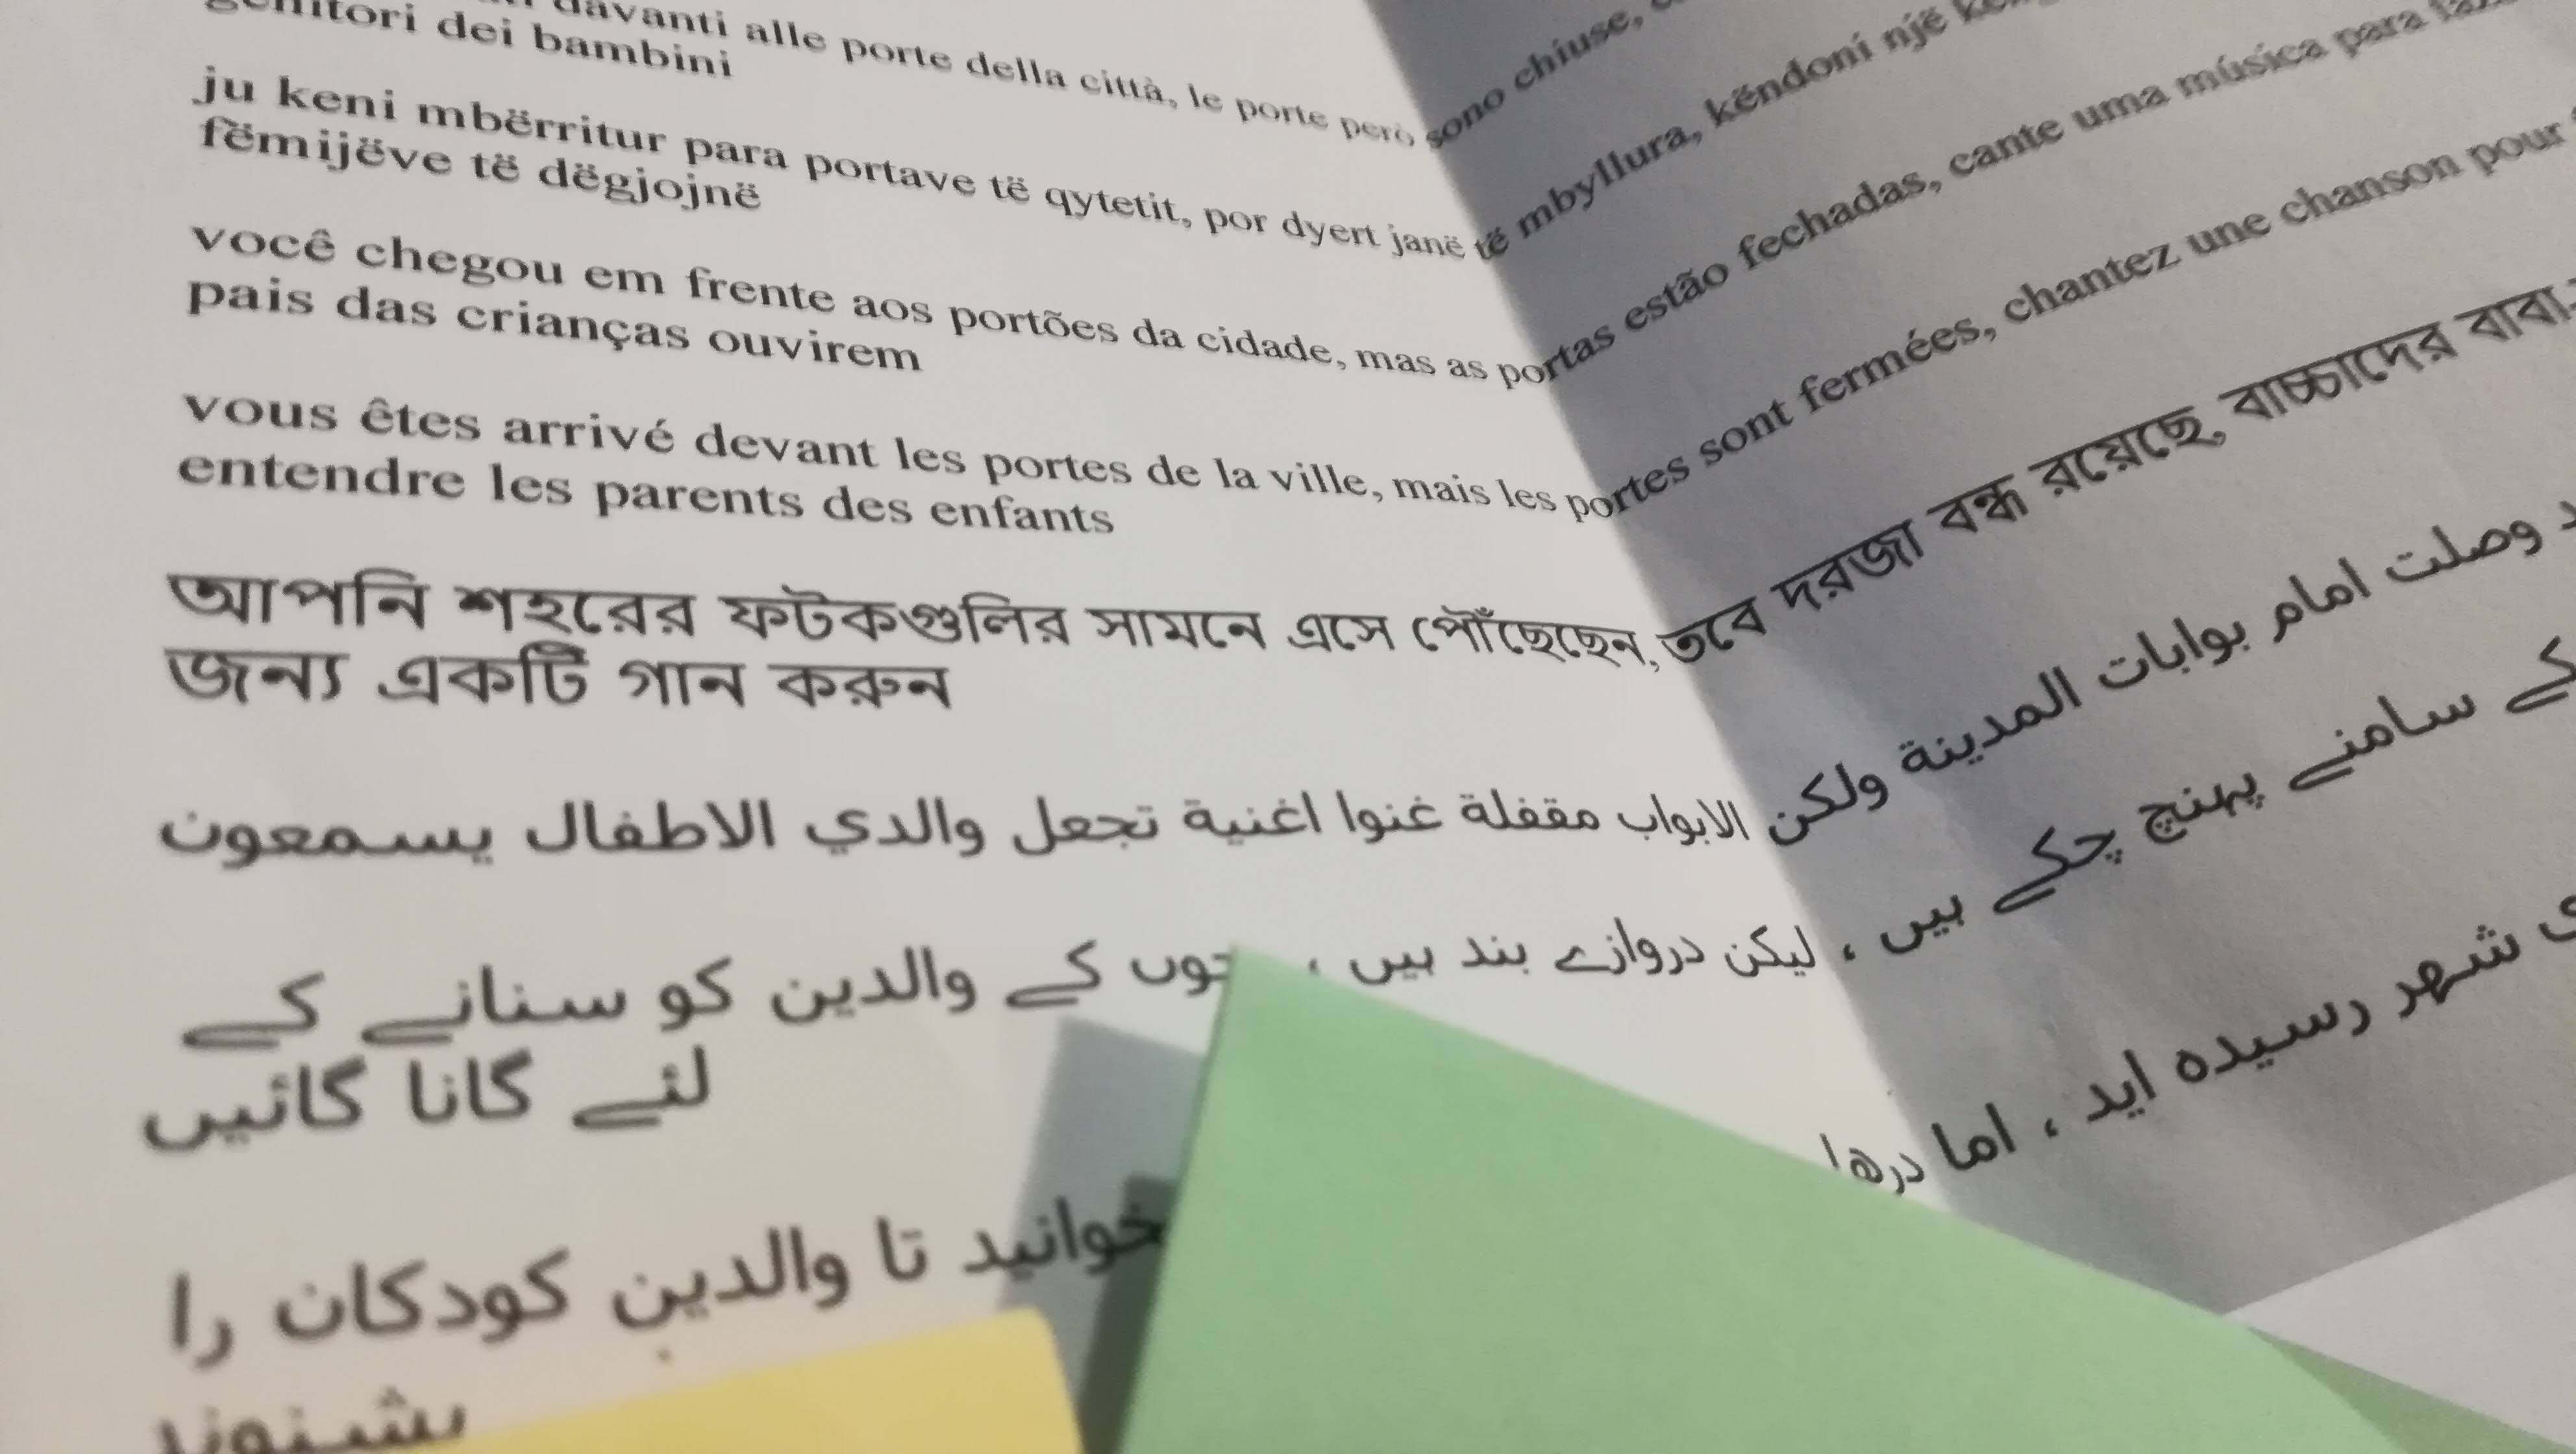 davanti alle porte della città, le porte però sono chiuse,
genitori dei bambini
ju keni mbërritur para portave të qytetit, por dyert janë të mbyllura, këndoni një
fëmijëve të dëgjojnë
você chegou em frente aos portões da cidade, mas as portas estão fechadas, cante uma música para
pais das crianças ouvirem
vous êtes arrivé devant les portes de la ville, mais les portes sont fermées, chantez une chanson pour
entendre les parents des enfants
আপনি শহরের ফটকগুলির সামনে এসে পৌঁছেছেন, তবে দরজা বন্ধ রয়েছে, বাচ্চাদের বাবা
জন্য একটি গান করুন
وصلت امام بوابات المدينة ولكن الابواب مقفلة غنوا اغنية تجعل والدي الاطفال يسمعون
کے سامنے پہنچ چکے ہیں ، لیکن دروازے بند ہیں ، کے والدین کو سنانے کے
لئے گانا گائیں
شهر رسیده اید ، اما درها
خوانید تا والدین کودکان را
بشنوند